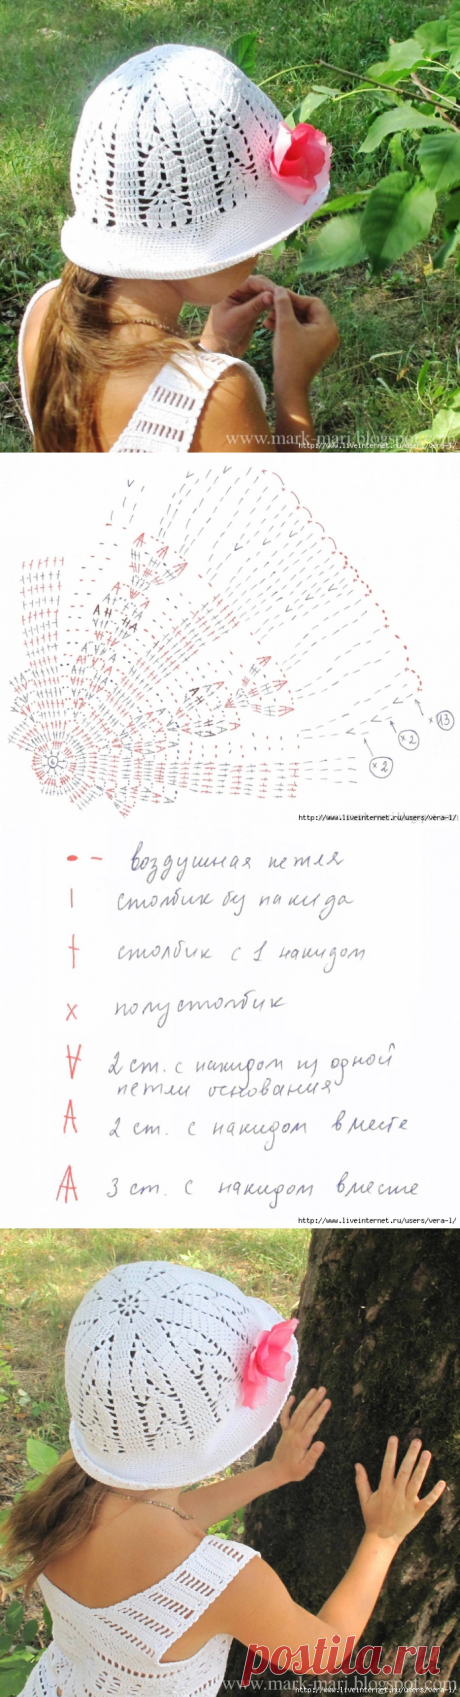 www.mark-mari.blogspot.com
http://www.liveinternet.ru/users/vera-l/
6
x 13
x 2
x 2
http://www.liveinternet.ru/users/vera-l/
воздушная петля
столбик б/накида
столбик с 1 накидом
x полустолбик
2 ст. с накидом из одной
петли основания
2 ст. с накидом вместе
3 ст. с накидом вместе
http://www.liveinternet.ru/users/vera-l/
postila.ru
www.mark-mari.blogspot.com
http://www.liveinternet.ru/users/vera-l/